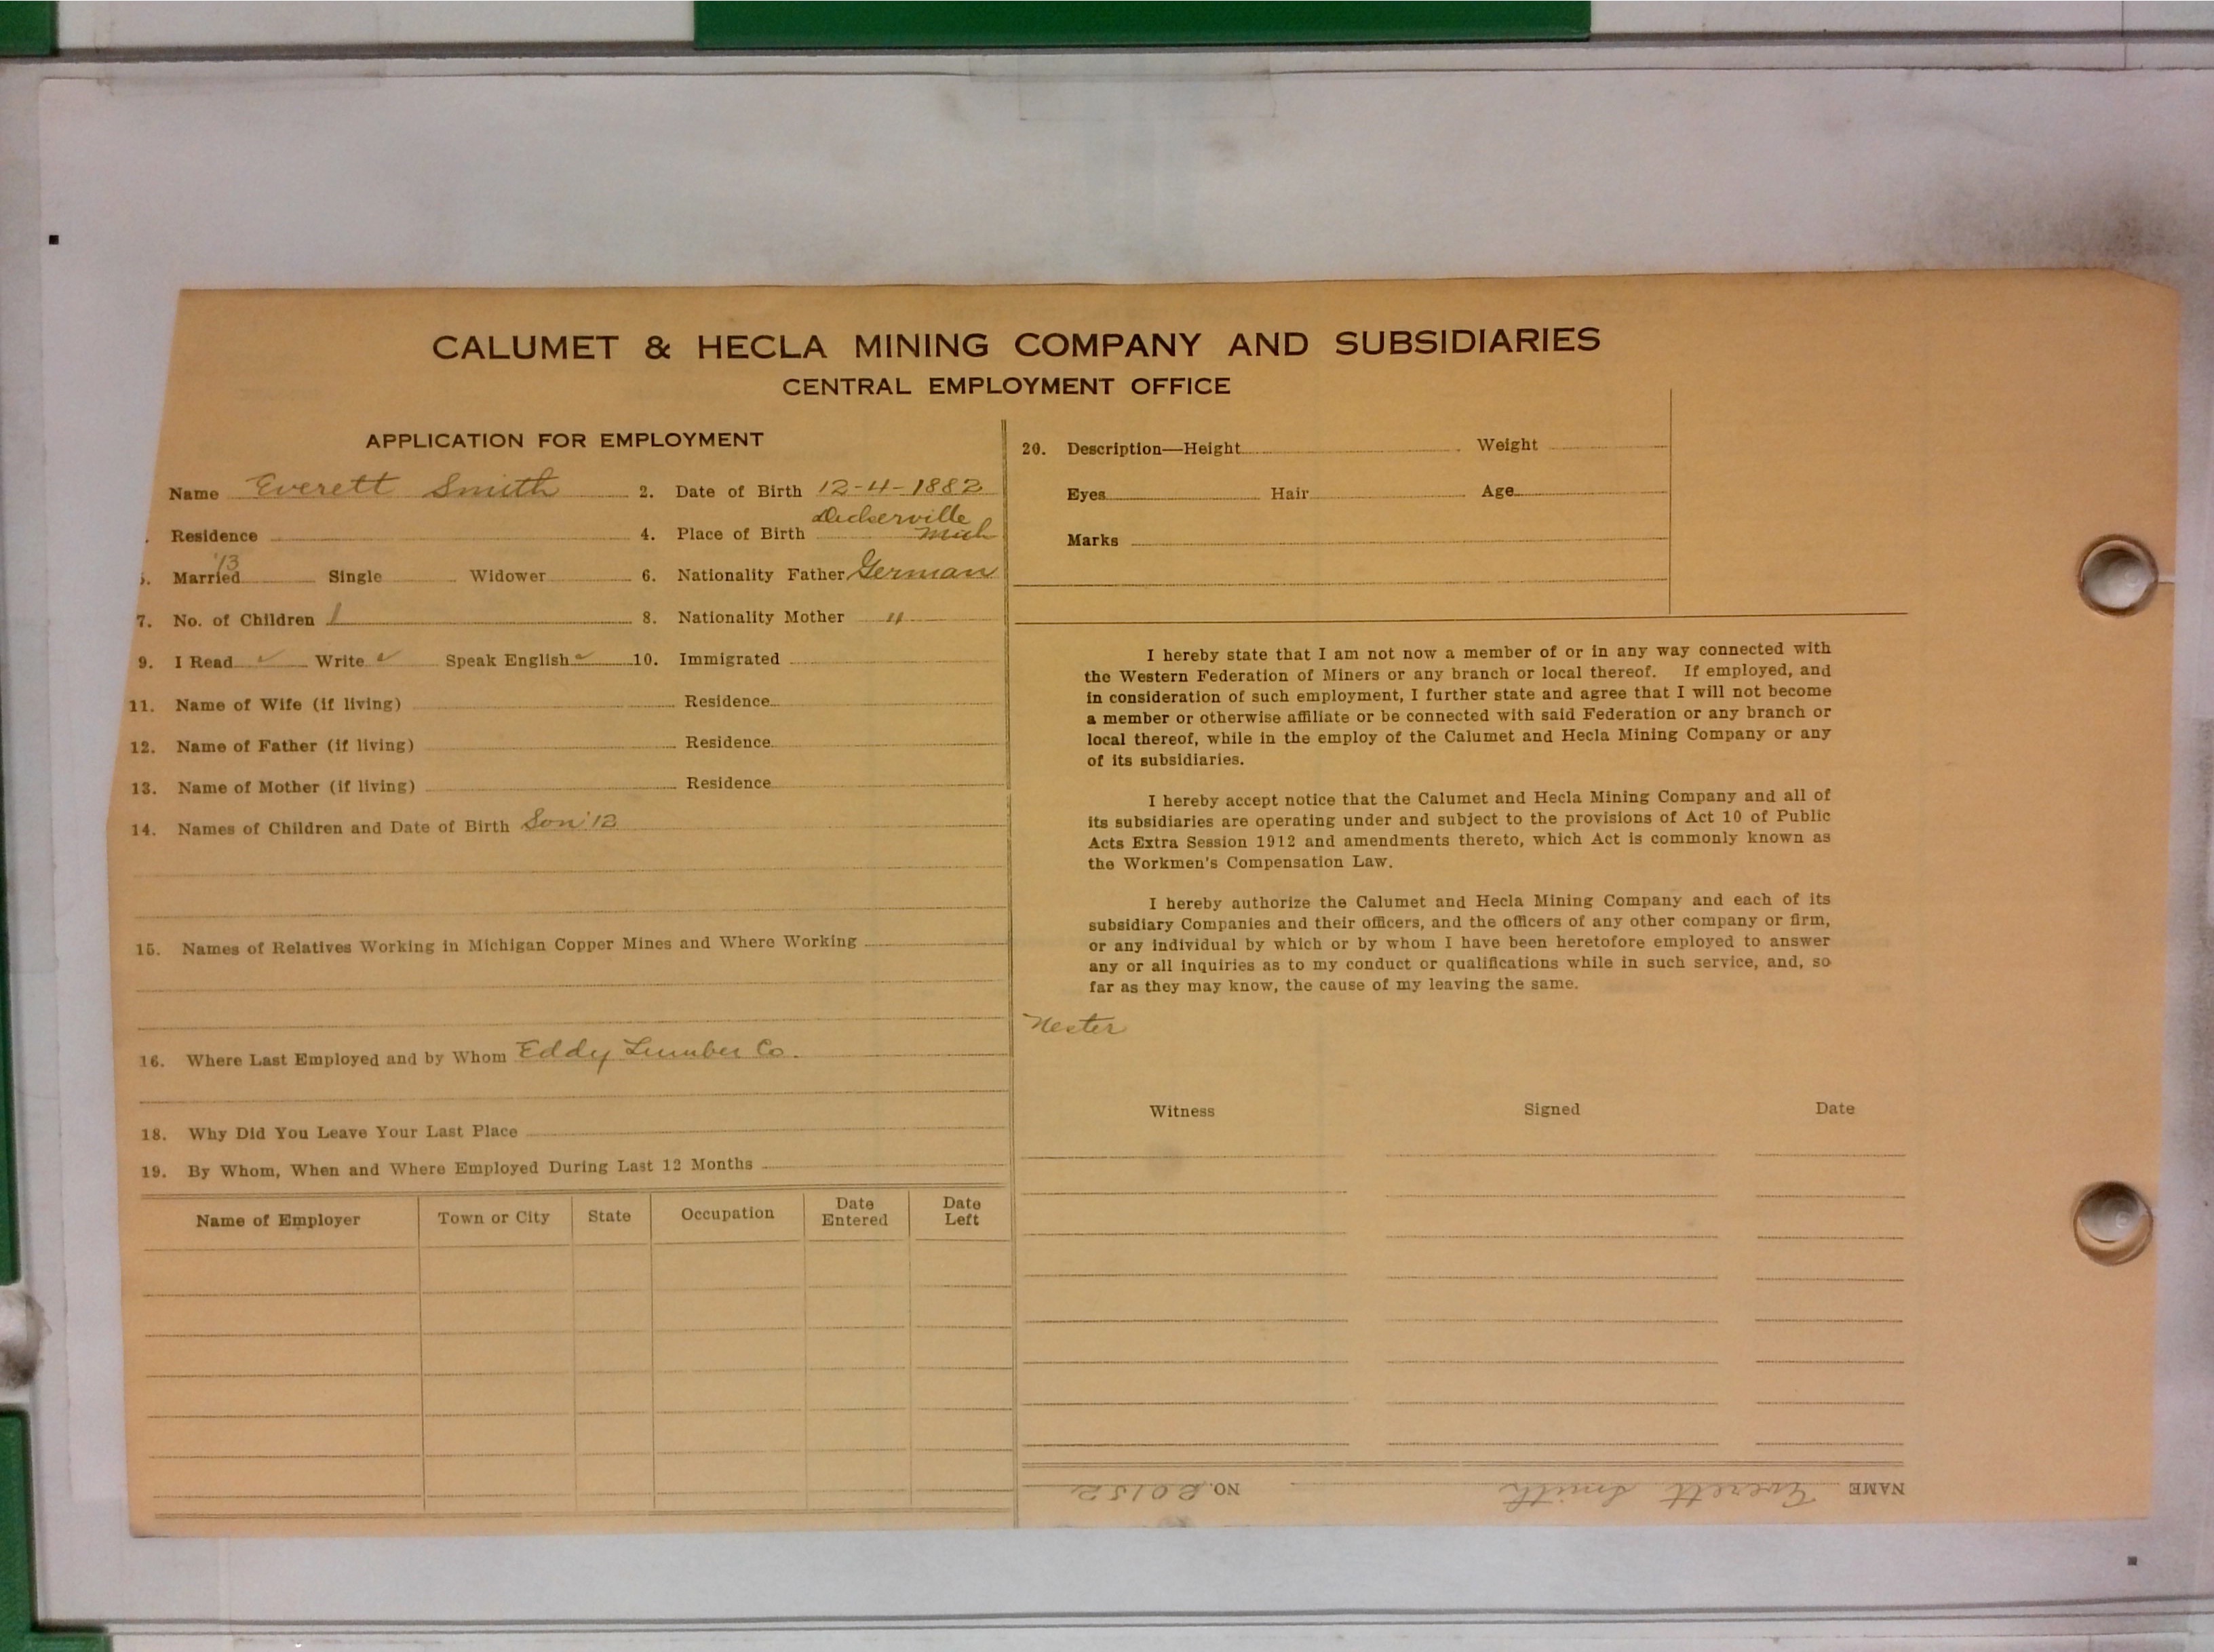 CALUMET & HECLA MINING COMPANY AND SUBSIDIARIES
CENTRAL EMPLOYMENT OFFICE
APPLICATION FOR EMPLOYMENT
Name Everett Smith 2. Date of Birth 12-4-1882
Residence 4. Place of Birth Deckerville Mich
5. Married '13 Single Widower 6. Nationality Father German
7. No. of Children 1 8. Nationality Mother "
9. I Read ✓ Write ✓ Speak English ✓ 10. Immigrated
11. Name of Wife (if living) Residence
12. Name of Father (if living) Residence
13. Name of Mother (if living) Residence
14. Names of Children and Date of Birth Son '12
15. Names of Relatives Working in Michigan Copper Mines and Where Working
16. Where Last Employed and by Whom Eddy Lumber Co.
18. Why Did You Leave Your Last Place
19. By Whom, When and Where Employed During Last 12 Months
Name of Employer Town or City State Occupation Date Entered Date Left
20. Description—Height Weight
Eyes Hair Age
Marks
I hereby state that I am not now a member of or in any way connected with
the Western Federation of Miners or any branch or local thereof. If employed, and
in consideration of such employment, I further state and agree that I will not become
a member or otherwise affiliate or be connected with said Federation or any branch or
local thereof, while in the employ of the Calumet and Hecla Mining Company or any
of its subsidiaries.
I hereby accept notice that the Calumet and Hecla Mining Company and all of
its subsidiaries are operating under and subject to the provisions of Act 10 of Public
Acts Extra Session 1912 and amendments thereto, which Act is commonly known as
the Workmen's Compensation Law.
I hereby authorize the Calumet and Hecla Mining Company and each of its
subsidiary Companies and their officers, and the officers of any other company or firm,
or any individual by which or by whom I have been heretofore employed to answer
any or all inquiries as to my conduct or qualifications while in such service, and, so
far as they may know, the cause of my leaving the same.
Nester
Witness Signed Date
NAME Everett Smith NO. 20152